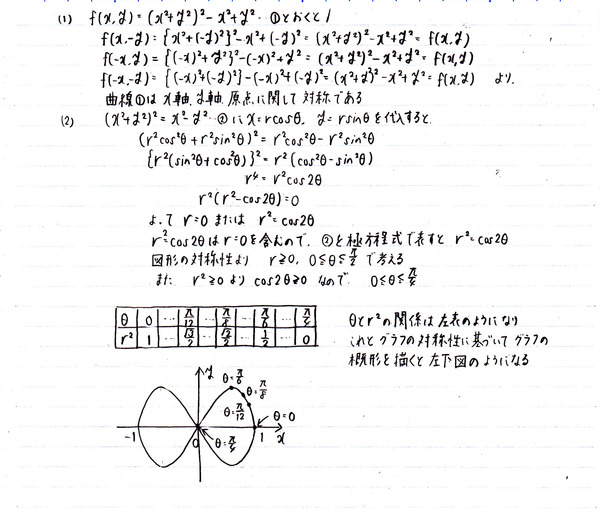 (1) f(x,y)=(x²+y²)²-x²+y²…①とおくと
f(x,-y)={x²+(-y)²}²-x²+(-y)²=(x²+y²)²-x²+y²=f(x,y)
f(-x,y)={(-x)²+y²}²-(-x)²+y²=(x²+y²)²-x²+y²=f(x,y)
f(-x,-y)={(-x)²+(-y)²}²-(-x)²+(-y)²=(x²+y²)²-x²+y²=f(x,y) より、
曲線①は x軸、y軸、原点に関して対称である
(2) (x²+y²)²=x²-y²…②に x=rcosθ, y=rsinθを代入すると、
(r²cos²θ+r²sin²θ)²=r²cos²θ-r²sin²θ
{r²(sin²θ+cos²θ)}²=r²(cos²θ-sin²θ)
r⁴=r²cos2θ
r²(r²-cos2θ)=0
よって r=0 または r²=cos2θ
r²=cos2θは r=0を含むので、②を極方程式で表すと r²=cos2θ
図形の対称性より r≧0, 0≦θ≦π/2 で考える
また r²≧0 より cos2θ≧0 なので、 0≦θ≦π/4
θ 0 … π/12 … π/8 … π/6 … π/4
r² 1 … √3/2 … √2/2 … 1/2 … 0
θとr²の関係は左表のようになり
これとグラフの対称性に基づいてグラフの
概形を描くと左下図のようになる
y
θ=π/6
θ=π/8
θ=π/12
θ=0
-1 0 θ=π/4 1 x